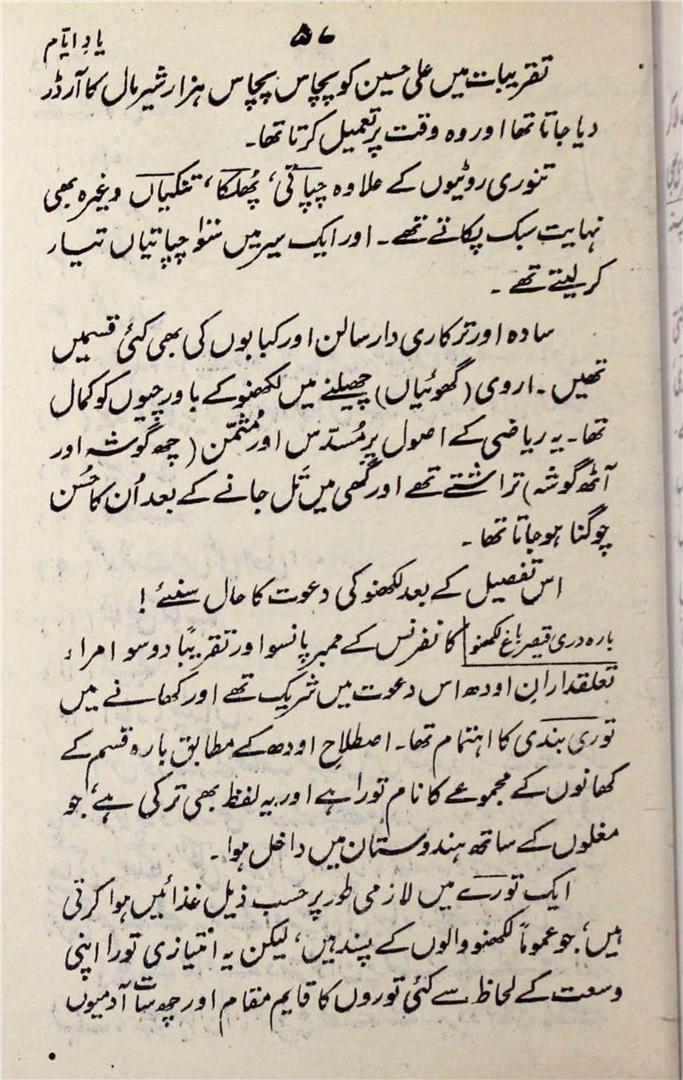 ۵۷
یادِ ایّام
تقریبات میں علی حسین کو پچاس پچاس ہزار شیرمال کا آرڈر
دیا جاتا تھا اور وہ وقت پر تعمیل کرتا تھا۔
تنوری روٹیوں کے علاوہ چپاتی، پُھلکا، تنکیاں وغیرہ بھی
نہایت سبک پکاتے تھے۔ اور ایک سیر میں سَو چپاتیاں تیار
کر لیتے تھے۔
سادہ اور ترکاری دار سالن اور کبابوں کی بھی کئی قسمیں
تھیں۔ اروی (گھوئیاں) چھیلنے میں لکھنو کے باورچیوں کو کمال
تھا۔ یہ ریاضی کے اصول پر مُسدّس اور مُثمّن (چھ گوشہ اور
آٹھ گوشہ) تراشتے تھے اور گھی میں تَل جانے کے بعد اُن کا حُسن
چوگنا ہو جاتا تھا۔
اس تفصیل کے بعد لکھنو کی دعوت کا حال سنئے!
بارہ دری قیصر باغ لکھنو کانفرنس کے ممبر پانسو اور تقریبًا دو سو امراء
تعلقدارانِ اودھ اس دعوت میں شریک تھے اور کھانے میں
توری بندی کا اہتمام تھا۔ اصطلاحِ اودھ کے مطابق بارہ قسم کے
کھانوں کے مجموعے کا نام تورا ہے اور یہ لفظ بھی ترکی ہے، جو
مغلوں کے ساتھ ہندوستان میں داخل ہوا۔
ایک تورے میں لازمی طور پر حسب ذیل غذائیں ہوا کرتی
ہیں، جو عمومًا لکھنو والوں کے پسند ہیں، لیکن یہ امتیازی تورا اپنی
وسعت کے لحاظ سے کئی توروں کا قایم مقام اور چھ سات آدمیوں